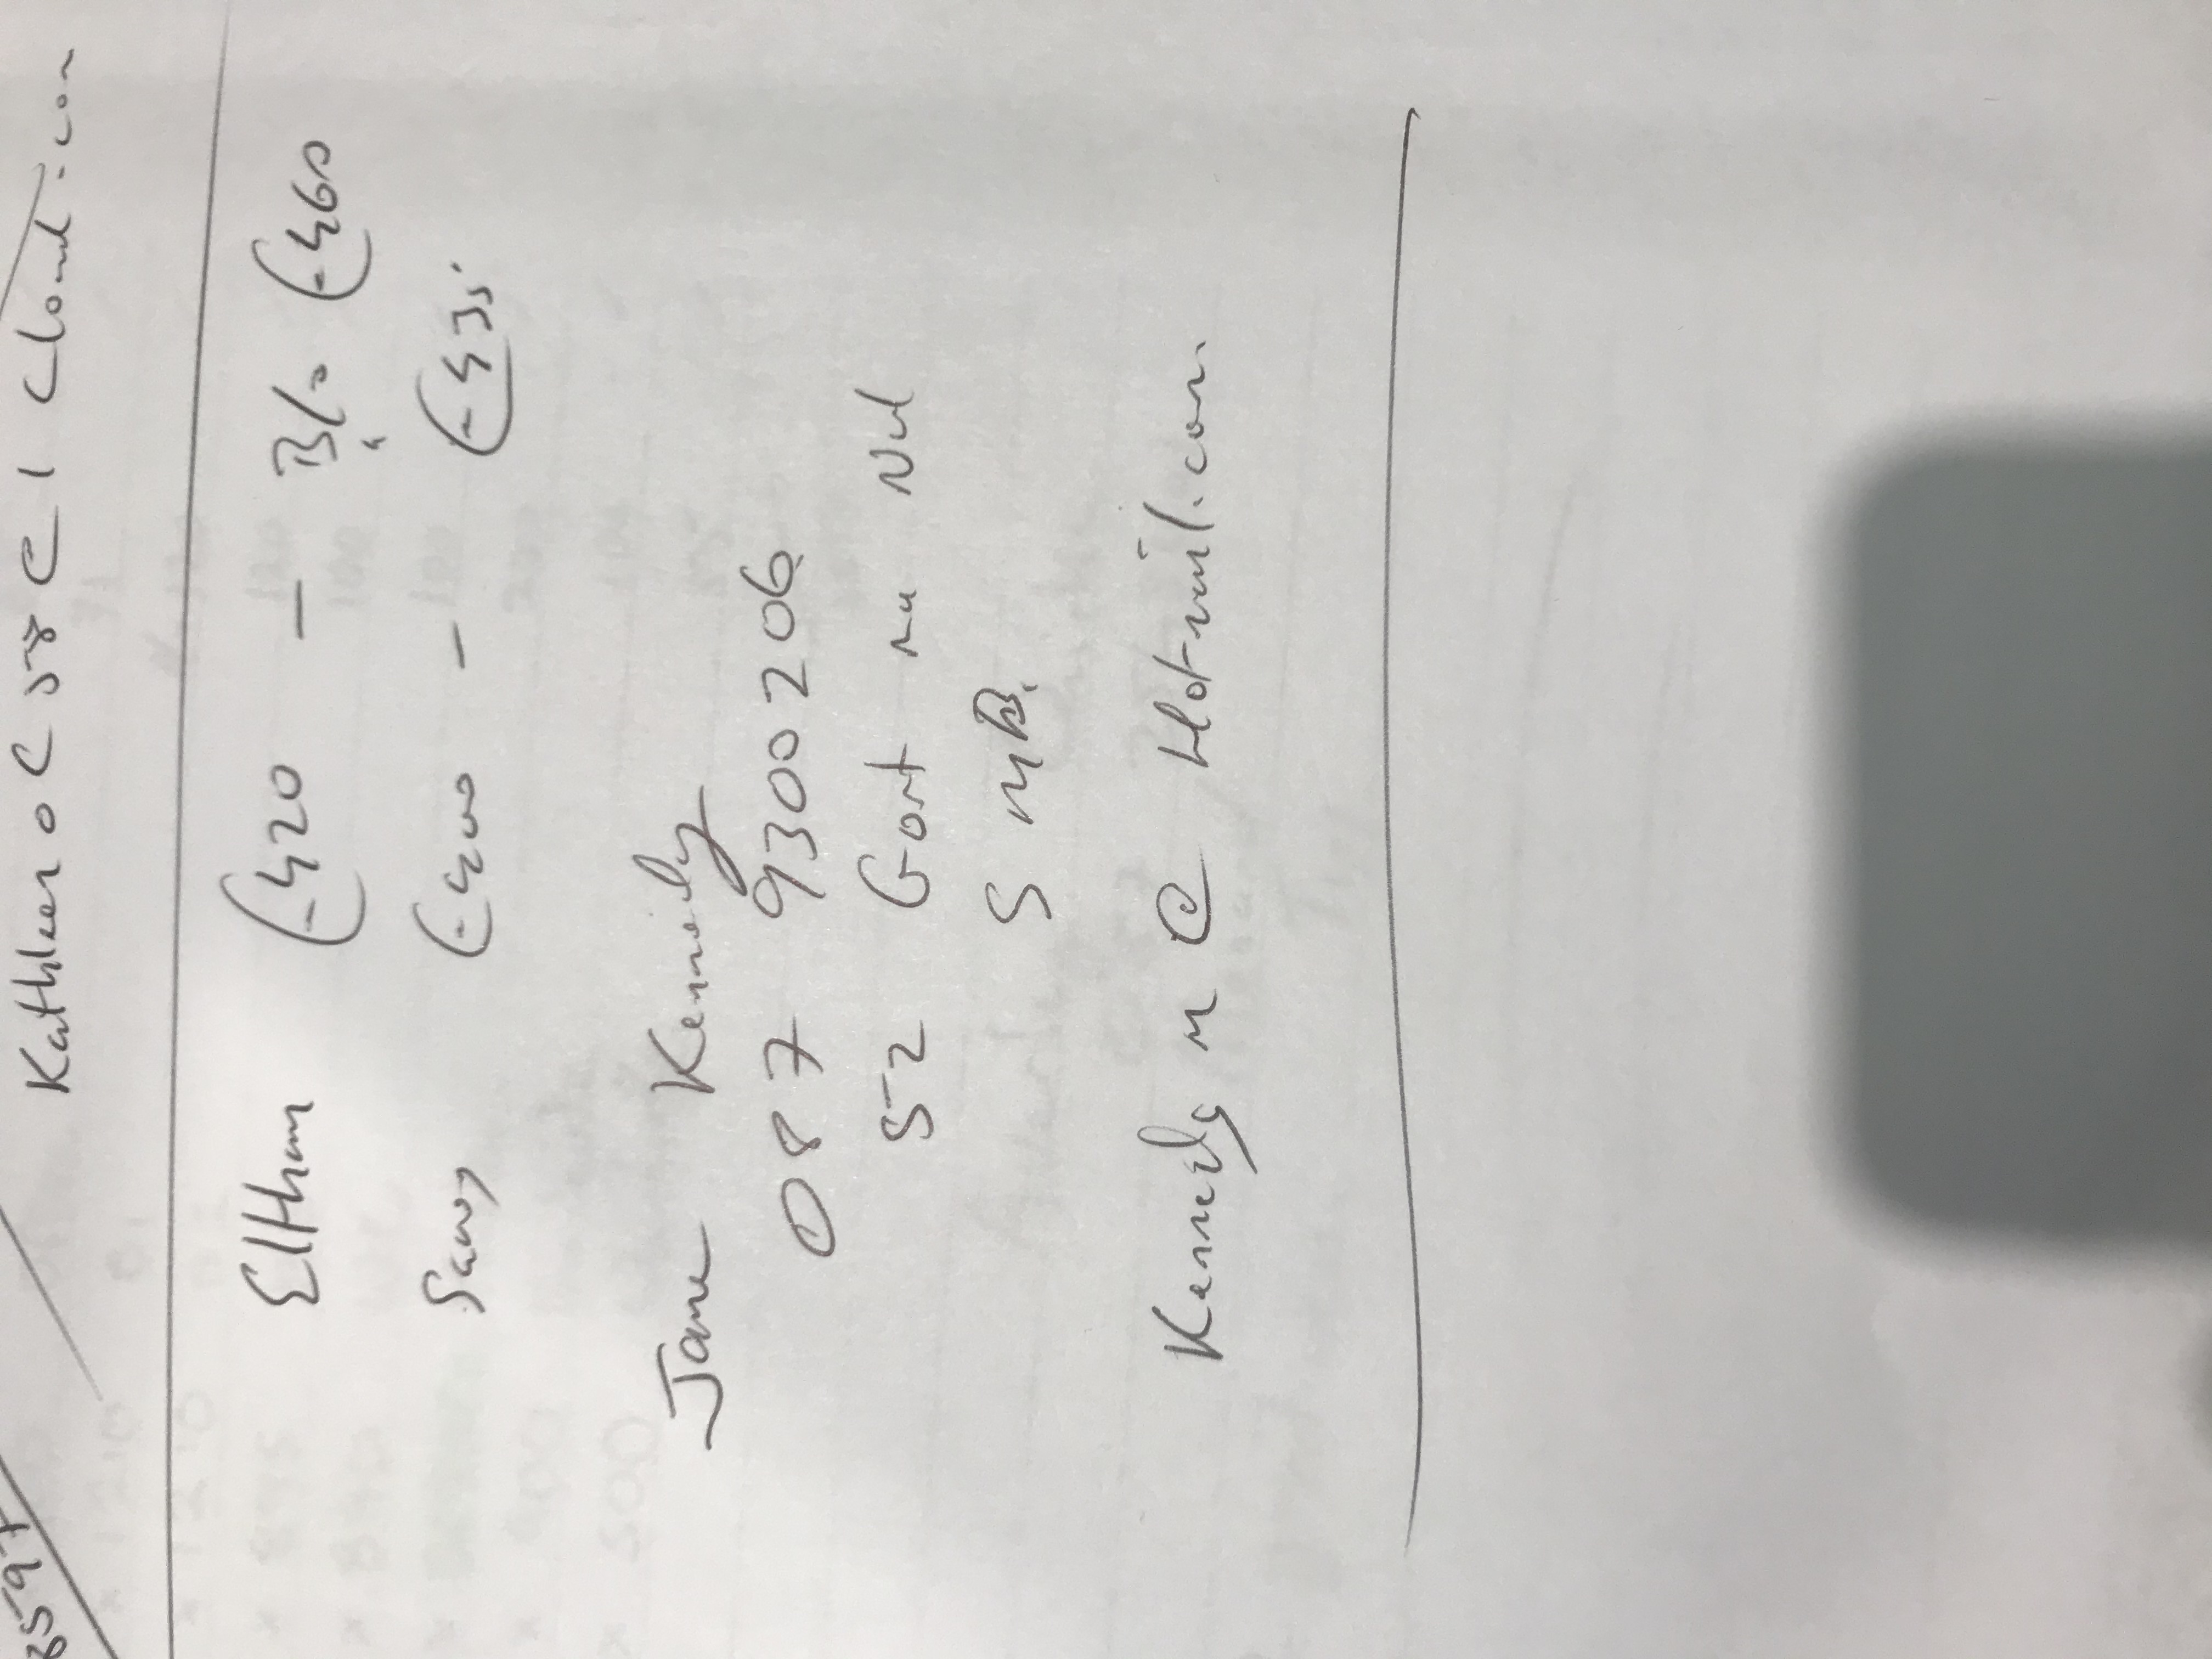 8597
Kathleenoc58@icloud.com
Eltham €420 - B/o €460
Savoy €400 - €435
Jane Kennedy
087 9300206
52 Gort na
S
Kennedy m @ Hotmail.com